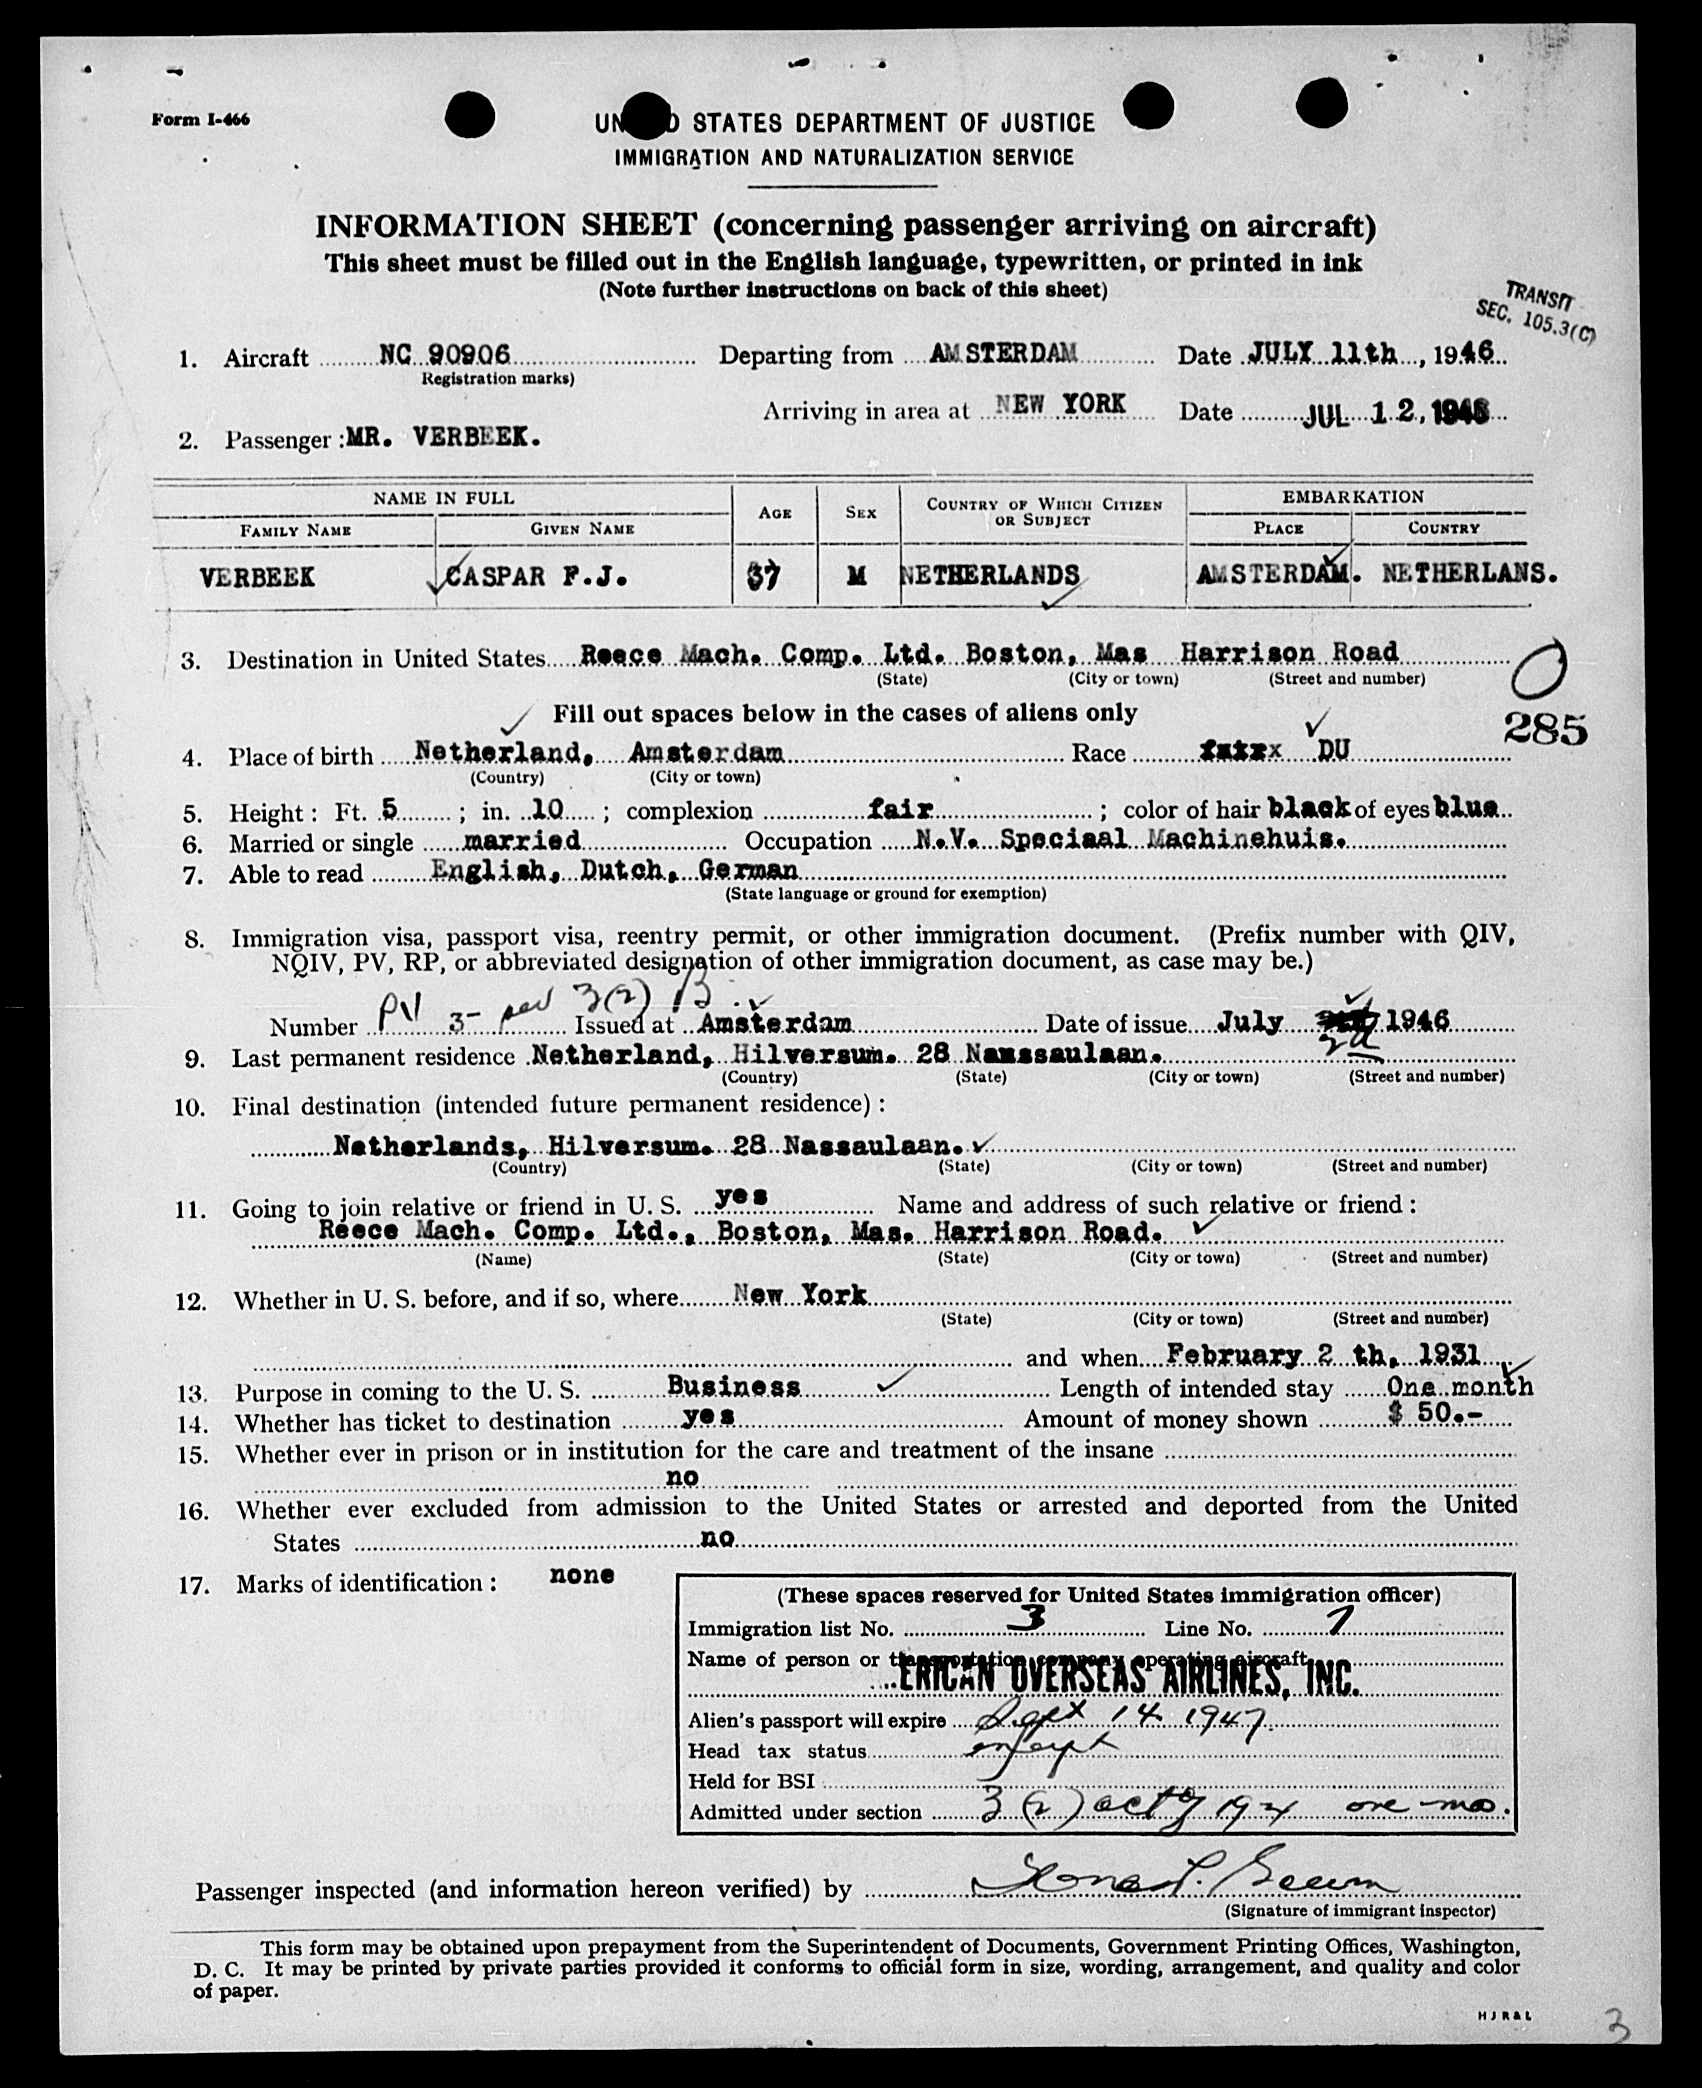 Form I-466
UNITED STATES DEPARTMENT OF JUSTICE
IMMIGRATION AND NATURALIZATION SERVICE
INFORMATION SHEET (concerning passenger arriving on aircraft)
This sheet must be filled out in the English language, typewritten, or printed in ink
(Note further instructions on back of this sheet)
TRANSIT
SEC. 105.3(C)
1. Aircraft NC 90906 Departing from AMSTERDAM Date JULY 11th, 1946
Registration marks)
Arriving in area at NEW YORK Date JUL 12, 1946
2. Passenger: MR. VERBEEK.
NAME IN FULL AGE SEX COUNTRY OF WHICH CITIZEN OR SUBJECT EMBARKATION
FAMILY NAME GIVEN NAME PLACE COUNTRY
VERBEEK CASPAR F.J. 37 M NETHERLANDS AMSTERDAM. NETHERLANS.
3. Destination in United States Reece Mach. Comp. Ltd. Boston, Mas Harrison Road
(State) (City or town) (Street and number)
0
285
Fill out spaces below in the cases of aliens only
4. Place of birth Netherland, Amsterdam Race DU
(Country) (City or town)
5. Height: Ft. 5; in. 10; complexion fair; color of hair black of eyes blue
6. Married or single married Occupation N.V. Speciaal Machinehuis.
7. Able to read English, Dutch, German
(State language or ground for exemption)
8. Immigration visa, passport visa, reentry permit, or other immigration document. (Prefix number with QIV,
NQIV, PV, RP, or abbreviated designation of other immigration document, as case may be.)
Number PV 3- 3(2) B Issued at Amsterdam Date of issue July 2d 1946
9. Last permanent residence Netherland, Hilversum. 28 Nanssaulaan.
(Country) (State) (City or town) (Street and number)
10. Final destination (intended future permanent residence):
Netherlands, Hilversum. 28 Nassaulaan.
(Country) (State) (City or town) (Street and number)
11. Going to join relative or friend in U. S. yes Name and address of such relative or friend:
Reece Mach. Comp. Ltd., Boston, Mas. Harrison Road.
(Name) (State) (City or town) (Street and number)
12. Whether in U. S. before, and if so, where New York
(State) (City or town) (Street and number)
and when February 2 th, 1931
13. Purpose in coming to the U. S. Business Length of intended stay One month
14. Whether has ticket to destination yes Amount of money shown $ 50.-
15. Whether ever in prison or in institution for the care and treatment of the insane
no
16. Whether ever excluded from admission to the United States or arrested and deported from the United
States no
17. Marks of identification: none
(These spaces reserved for United States immigration officer)
Immigration list No. 3 Line No. 7
Name of person or transportation company operating aircraft
ERICAN OVERSEAS AIRLINES, INC.
Alien's passport will expire Sept 14 1947
Head tax status exempt
Held for BSI
Admitted under section 3 (2) act of 1924 one mo.
Passenger inspected (and information hereon verified) by
(Signature of immigrant inspector)
This form may be obtained upon prepayment from the Superintendent of Documents, Government Printing Offices, Washington,
D. C. It may be printed by private parties provided it conforms to official form in size, wording, arrangement, and quality and color
of paper.
H J R & L
3